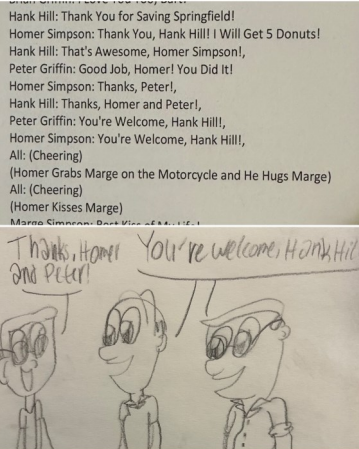 Hank Hill: Thank You for Saving Springfield!
Homer Simpson: Thank You, Hank Hill! I Will Get 5 Donuts!
Hank Hill: That's Awesome, Homer Simpson!,
Peter Griffin: Good Job, Homer! You Did It!
Homer Simpson: Thanks, Peter!,
Hank Hill: Thanks, Homer and Peter!,
Peter Griffin: You're Welcome, Hank Hill!,
Homer Simpson: You're Welcome, Hank Hill!,
All: (Cheering)
(Homer Grabs Marge on the Motorcycle and He Hugs Marge)
All: (Cheering)
(Homer Kisses Marge)
Marge Simpson: Best Kiss of My Life!
Thanks, Homer
and Peter!
You're welcome, Hank Hil